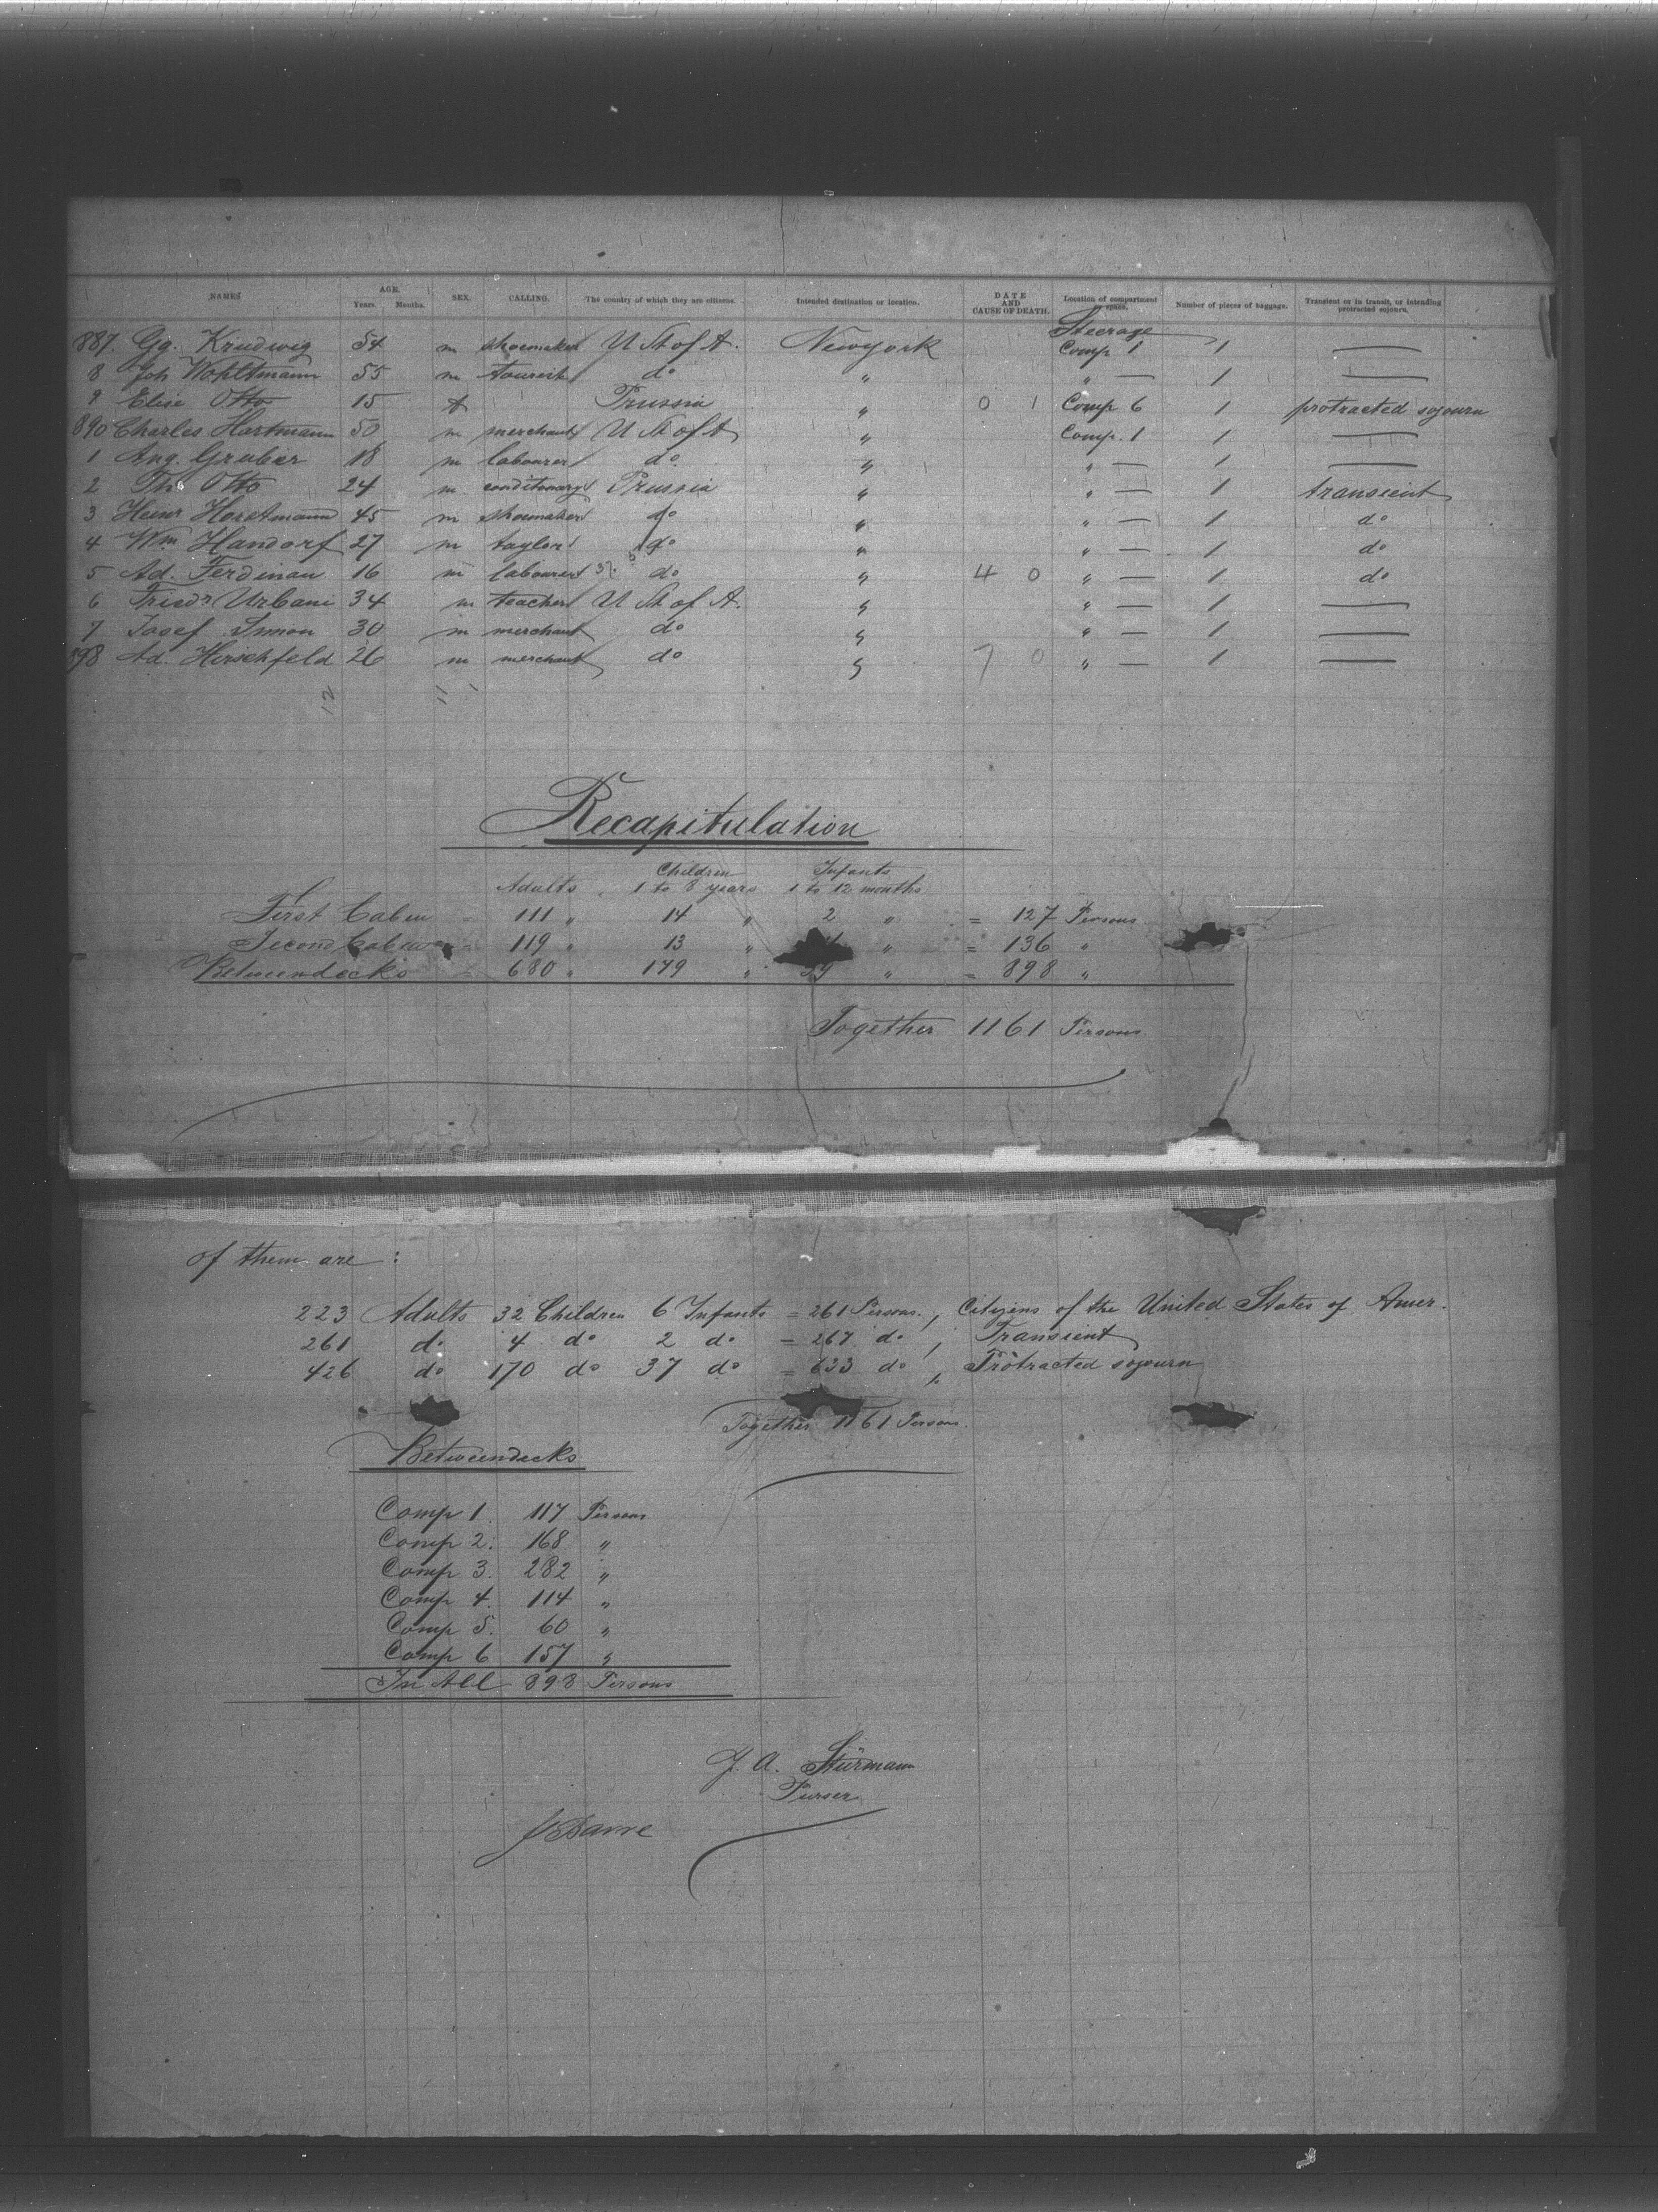 NAMES AGE. Years. Months. SEX. CALLING. The country of which they are citizens. Intended destination or location. DATE AND CAUSE OF DEATH. Location of compartment or space. Number of pieces of baggage. Transient or in transit, or intending protracted sojourn.
Steerage
887. Gg. Krudwig 54 m shoemaker U St of A. Newyork Comp 1 1 —
8 Joh Wohltmann 55 m tourist do " " — 1 —
9 Elise Otto 15 f Prussia " 0 1 Comp 6 1 protracted sojourn
890 Charles Hartmann 50 m merchant U St of A " Comp. 1 1 —
1 Aug. Gruber 18 m labourer do " " — 1 —
2 Th. Otto 24 m conditonary Prussia " " — 1 transient
3 Heinr Horstmann 45 m shoemaker do " " — 1 do
4 Wm Handorf 27 m taylor do " " — 1 do
5 Ad. Ferdinan 16 m labourer do " 4 0 " — 1 do
6 Friedr Urbani 34 m teacher U St of A. " " — 1 —
7 Josef Simon 30 m merchant do " " — 1 —
898 Ad. Hirschfeld 26 m merchant do " 7 0 " — 1 —
12 11 1
Recapitulation
Adults Children 1 to 8 years Infants 1 to 12 months
First Cabin 111 " 14 " 2 " = 127 Persons
Second Cabin 119 " 13 " " = 136 "
Betweendecks 680 " 179 " 39 " = 898 "
Together 1161 Persons
of them are :
223 Adults 32 Children 6 Infants = 261 Persons, Citizens of the United States of Amer.
261 do 4 do 2 do = 267 do, Transient
426 do 170 do 37 do = 633 do, Protracted sojourn
Together 1161 Persons.
Betweendecks
Comp 1. 117 Persons
Comp 2. 168 "
Comp 3. 282 "
Comp 4. 114 "
Comp 5. 60 "
Comp 6 157 "
In All 898 Persons
J. A. Stürmann
Purser
JBarre